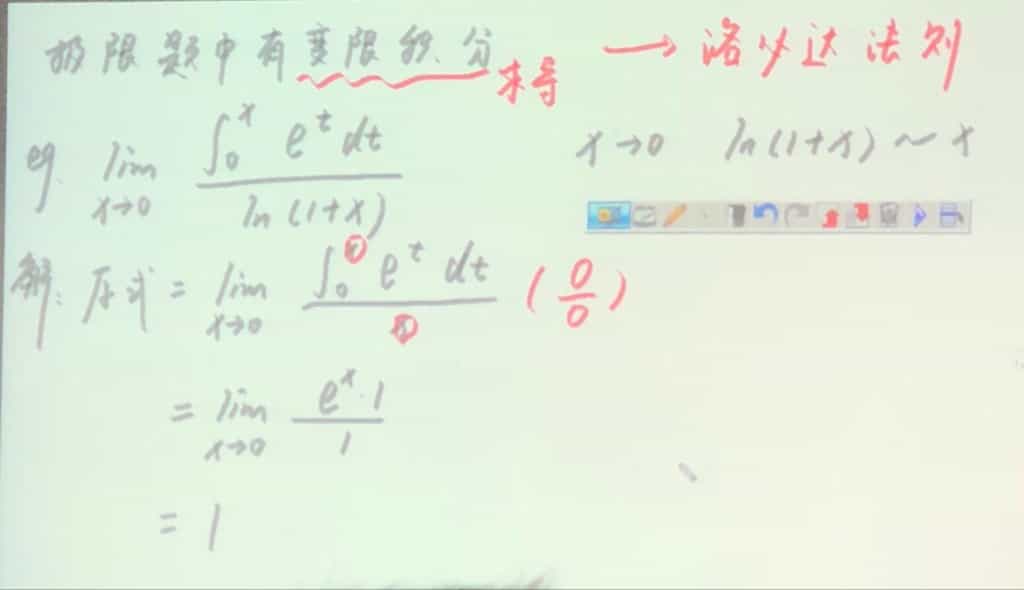 极限题中有变限积分求导 → 洛必达法则
例. lim x→0 ∫₀ˣ eᵗ dt / ln(1+x)    x→0  ln(1+x) ~ x
解: 原式 = lim x→0 ∫₀ˣ eᵗ dt / x (0/0)
= lim x→0 eˣ·1 / 1
= 1